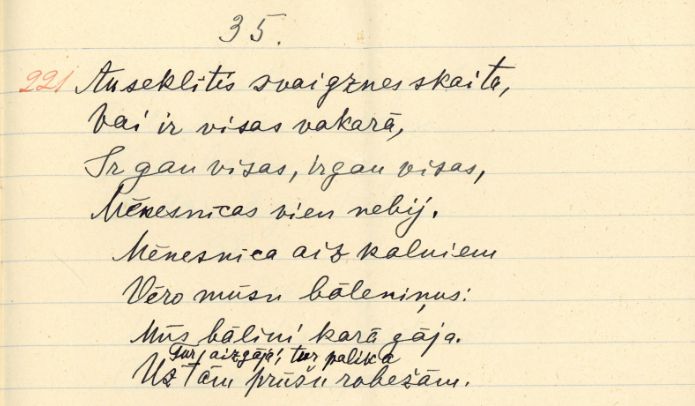 35.
221 Auseklītis svaigznes skaita,
Vai ir visas vakarā,
Ir gan visas, ir gan visas,
Mēnesnicas vien nebij.
Mēnesnica aiz kalniem
Vēro mūsu bāleniņus:
Mūs bāliņi karā gāja.
Tur aizgāja, tur palika
Uz tām prūšu robežām.